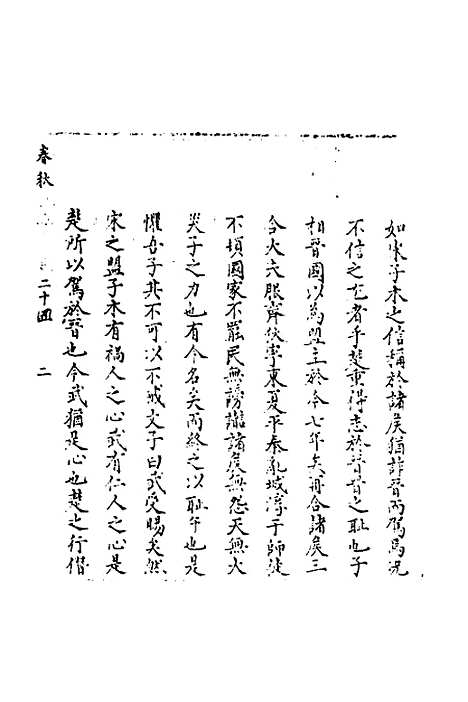 如宋子木之信稱於諸侯猶詐晉而駕焉況
不信之尤者乎楚重得志於晉晉之恥也子
相晉國以為盟主於今七年矣再合諸侯三
合大夫服齊狄寧東夏平秦亂城淳于師徒
不頓國家不罷民無謗讟諸侯無怨天無大
災子之力也有令名矣而終之以恥午也是
懼吾子其不可以不戒文子曰武受賜矣然
宋之盟子木有禍人之心武有仁人之心是
楚所以駕於晉也今武猶是心也楚又行僭
春秋
二十四
二